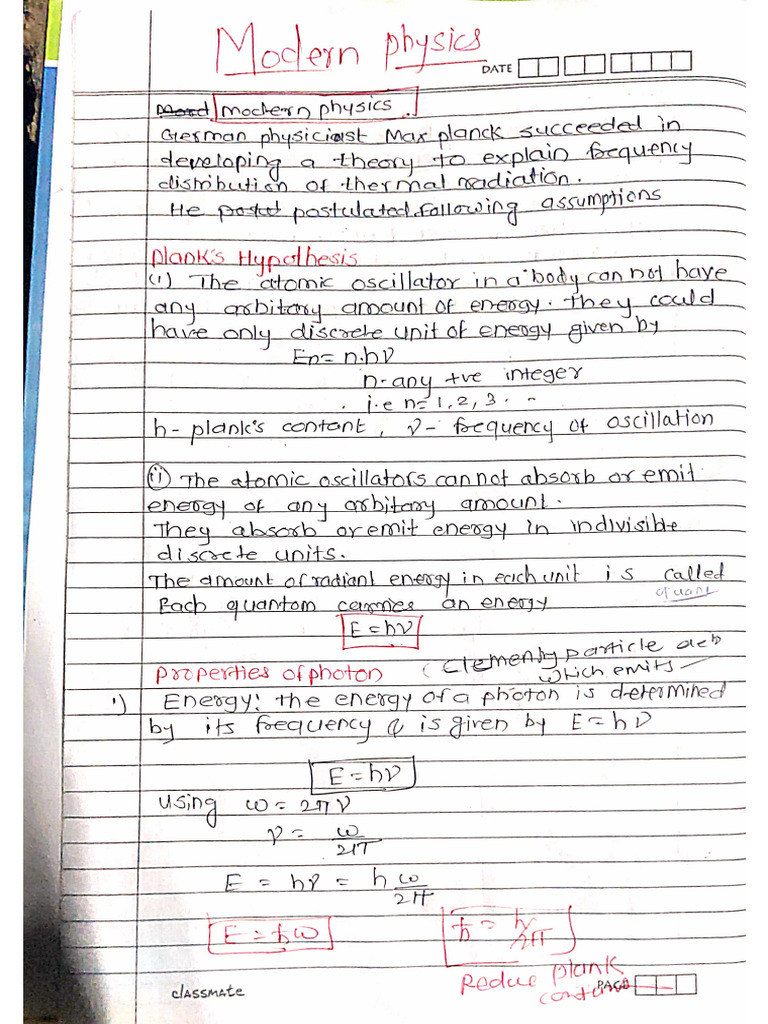 Modern physics
DATE
Mord modern physics
German physicist Max planck succeeded in
developing a theory to explain frequency
distribution of thermal radiation.
He postul postulated following assumptions
plank's Hypothesis
(i) The atomic oscillator in a body can not have
any arbitary amount of energy. they could
have only discrete unit of energy given by
En = n.hν
n-any +ve integer
i.e n=1,2,3. -
h- plank's contant, ν- frequency of oscillation
(ii) The atomic oscillators cannot absorb or emit
energy of any arbitary amount.
They absorb or emit energy in indivisible
discrete units.
The amount of radiant energy in each unit is called
Each quantom carries an energy quant
E = hν
Properties of photon (Elementry particle
which emits
1) Energy: the energy of a photon is determined
by its frequency & is given by E = hν
E = hν
using ω = 2πν
ν = ω/2π
E = hν = h ω/2π
E = ħω ħ = h/2π
Reduce plank
classmate PAGE